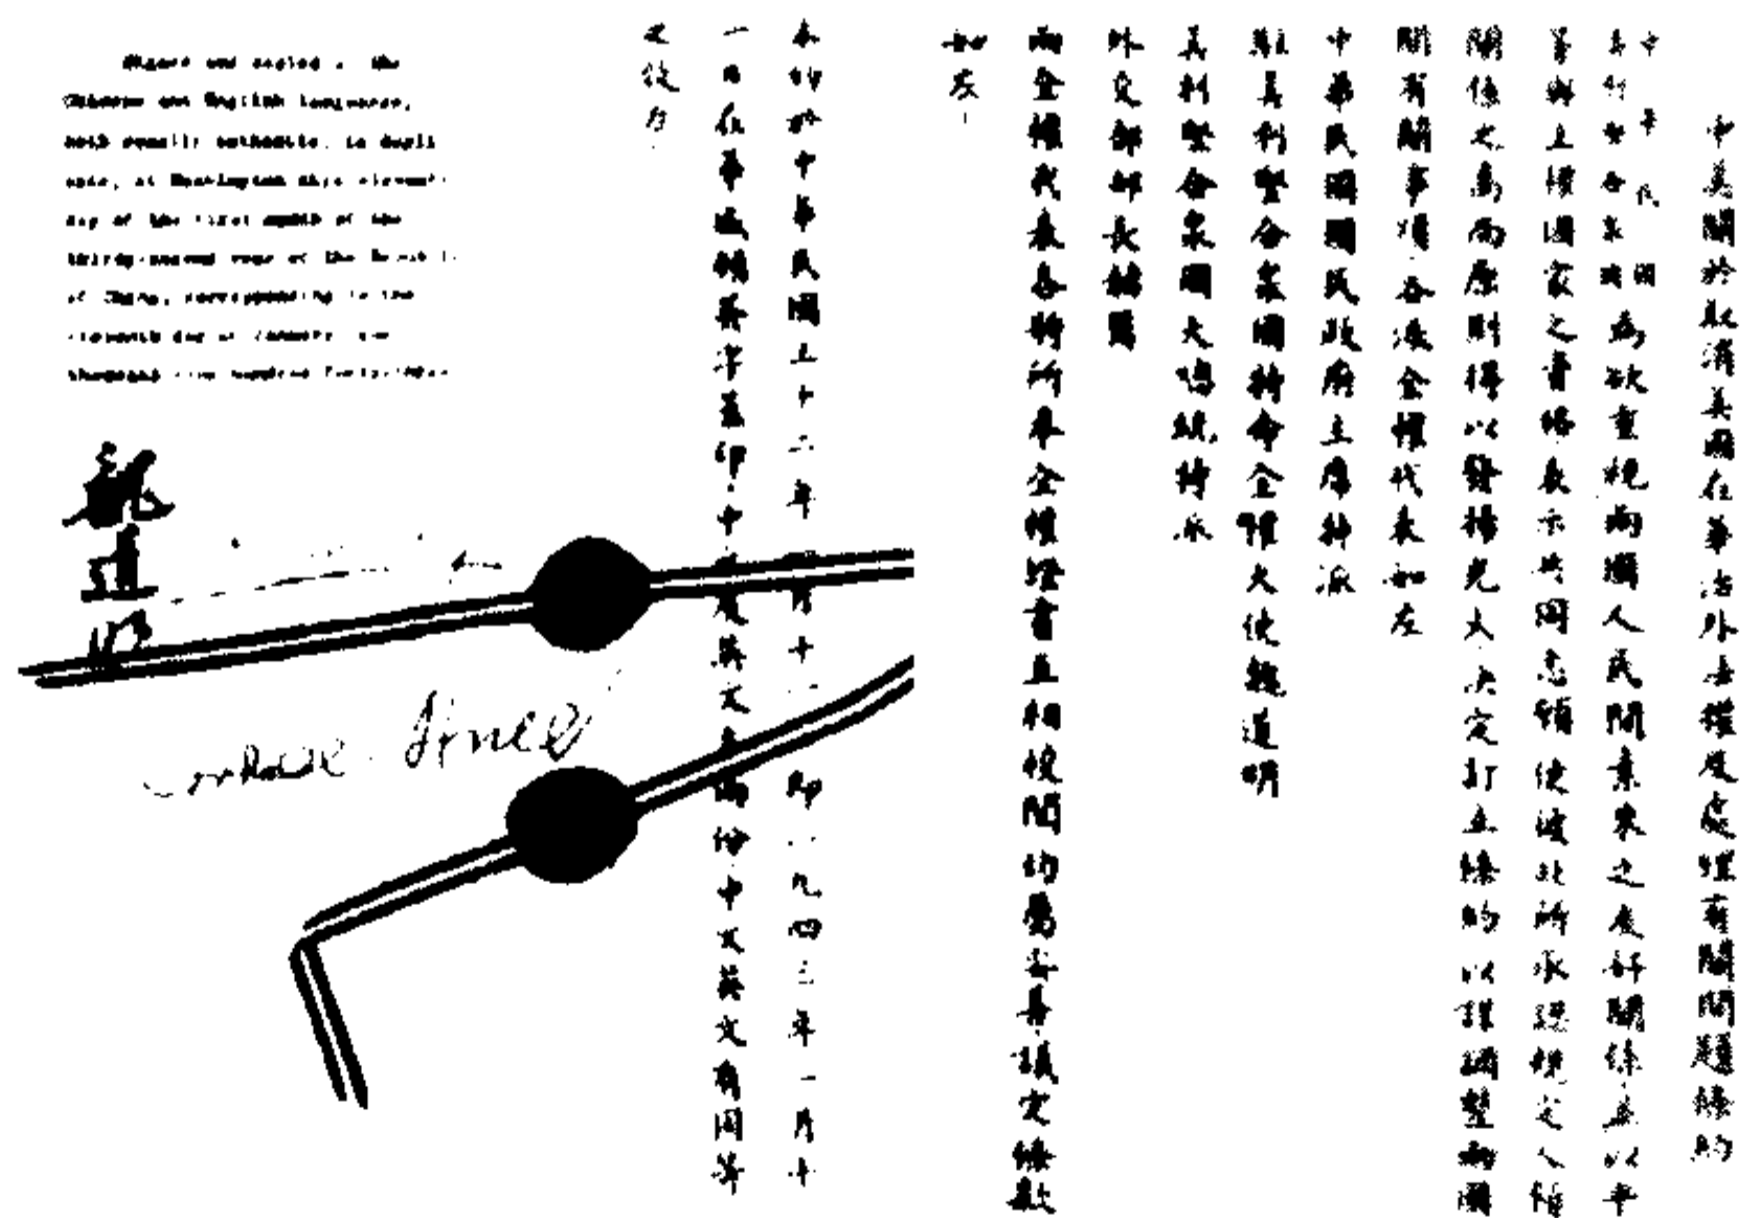 中美關於取消美國在華治外法權及處理有關問題條約
中華民國
美利堅合眾國為欲重視兩國人民間素來之友好關係並以平
等與主權國家之資格表示共同志願使彼此所承認規定人類
關係之高尚原則得以發揚光大決定訂立條約以謀調整兩國
間有關事項各派全權代表如左
中華民國國民政府主席特派
駐美利堅合眾國特命全權大使魏道明
美利堅合眾國大總統特派
外交部部長赫爾
兩全權代表各將所奉全權證書互相校閱均屬妥善議定條款
如左
本約於中華民國三十二年一月十一日即一九四三年一月十
一日在華盛頓簽字蓋印中文及英文各兩份中文英文有同等
之效力
Signed and sealed in the
Chinese and English languages,
both equally authentic, in dupli
cate, at Washington this eleventh
day of the first month of the
thirty-second year of the Republic
of China, corresponding to the
eleventh day of January, one
thousand nine hundred forty-three
魏道明
Cordell Hull